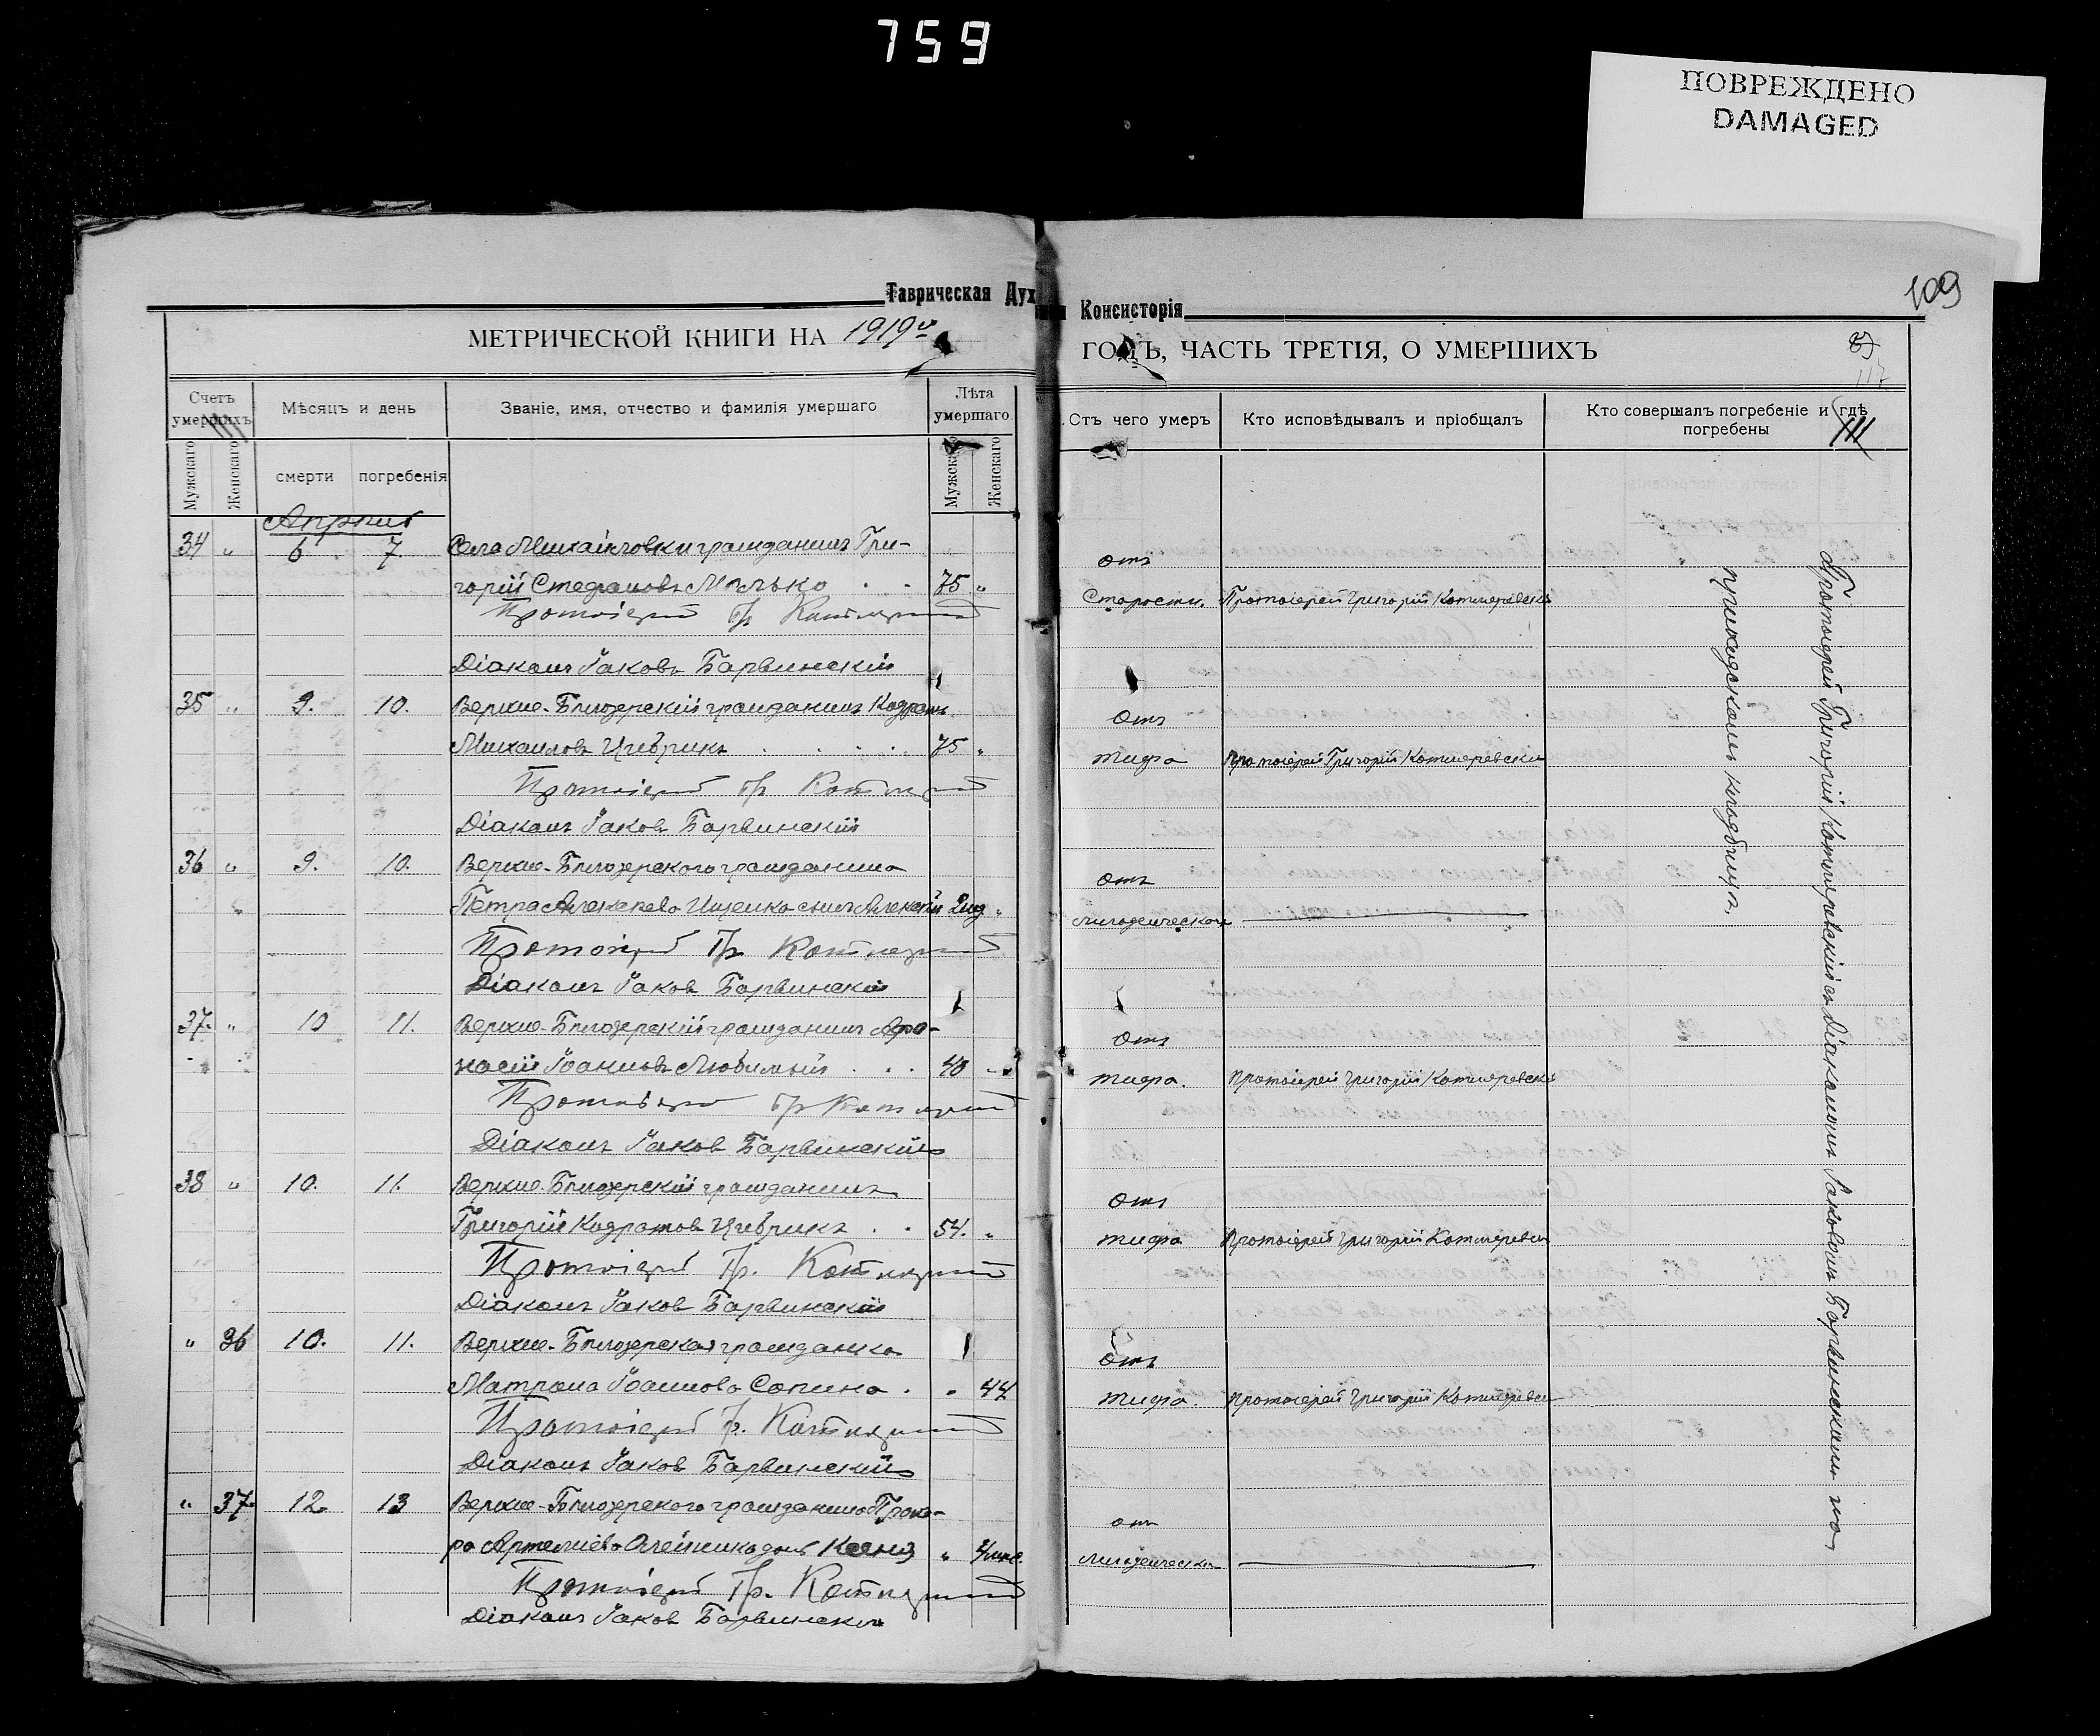 759
ПОВРЕЖДЕНО
DAMAGED
109
Таврическая Дух
Консисторія
МЕТРИЧЕСКОЙ КНИГИ НА 1919го
ГОДЪ, ЧАСТЬ ТРЕТІЯ, О УМЕРШИХЪ
117
111
Счетъ умершихъ
Мѣсяцъ и день
Званіе, имя, отчество и фамилія умершаго
Лѣта умершаго
Отъ чего умеръ
Кто исповѣдывалъ и пріобщалъ
Кто совершалъ погребеніе и гдѣ погребены
Мужскаго
Женскаго
смерти
погребенія
Мужскаго
Женскаго
Апрѣль
34 " 6 7 Села Михайловки гражданинъ Гри- отъ
горій Стефановъ 75 " Старости. Протоіерей Григорій Котляревскій
Протоіерей Гр Котляревскій
Діаконъ Іаковъ Барвинскій
35 " 9. 10. Верхне-Бѣлозерскій гражданинъ Кодратъ отъ
Михаиловъ Цѣбрикъ 75 " тифа Протоіерей Григорій Котляревскій
Протоіерей Гр Котляревскій
Діаконъ Іаковъ Барвинскій
36 " 9. 10. Верхне-Бѣлозерскаго гражданина отъ
Петра Алексѣева Ищенко сынъ Алексѣй 2 год " младенческой
Протоіерей Гр Котляревскій
Діаконъ Іаковъ Барвинскій
37. " 10 11. Верхне-Бѣлозерскій гражданинъ Афа- отъ
насій Іоанновъ Любимый 40 " тифа. Протоіерей Григорій Котляревскій
Протоіерей Гр Котляревскій
Діаконъ Іаковъ Барвинскій
38 " 10. 11. Верхне-Бѣлозерскій гражданинъ отъ
Григорій Кодратовъ Цѣбрикъ 54. " тифа Протоіерей Григорій Котляревскій
Протоіерей Гр. Котляревскій
Діаконъ Іаковъ Барвинскій
" 36 10. 11. Верхне-Бѣлозерская гражданка отъ
Матрона Іоаннова Сапина " 44 тифа. Протоіерей Григорій Котляревскій
Протоіерей Гр. Котляревскій
Діаконъ Іаковъ Барвинскій
" 37 12 13 Верхне-Бѣлозерскаго гражданина Прохо- отъ
ра Артеміева Олейника дочь Ксенія " 4 мѣс. младенческой
Протоіерей Гр. Котляревскій
Діаконъ Іаковъ Барвинскій
Протоіерей Григорій Котляревскій съ Діакономъ Іаковомъ Барвинскимъ на
приходскомъ кладбищѣ.